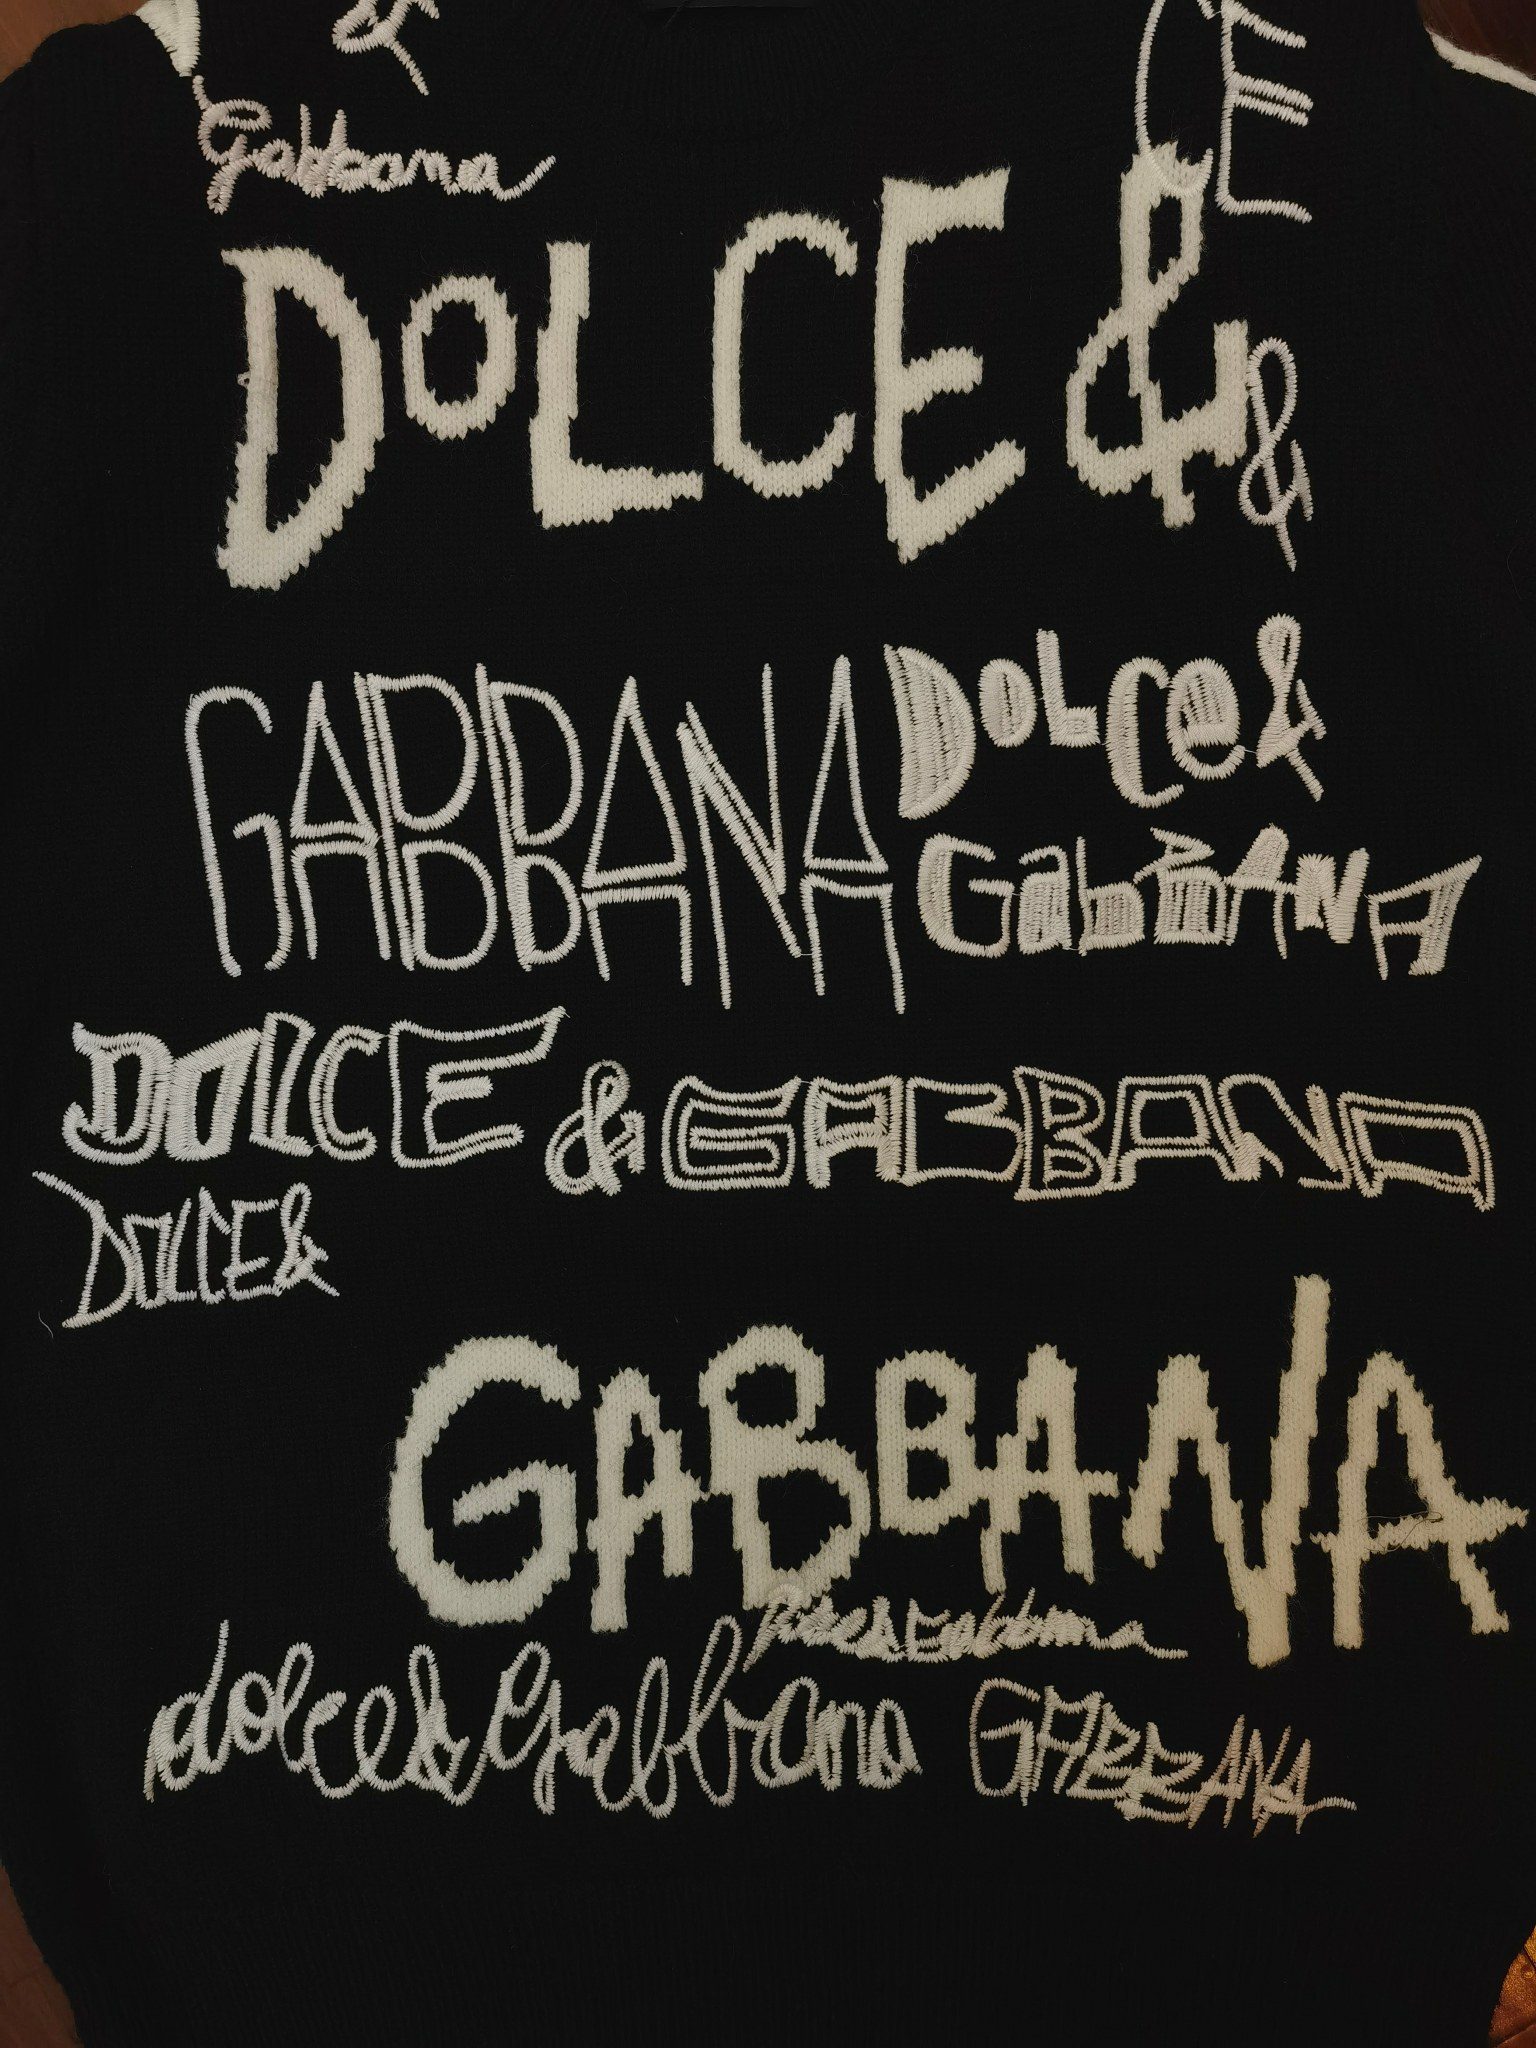 &
Gabbana
CE
DOLCE &
&
GABBANA
DOLCe&
GabBANA
DOLCE & GABBANA
DOLCE&
GABBANA
dolce&Gabbana
GABBANA